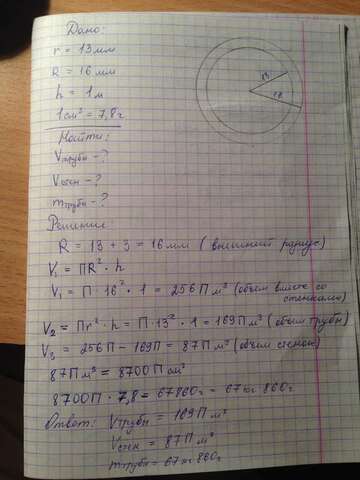 Дано:
r = 13 мм
R = 16 мм
h = 1 м
1 см³ = 7,8 г
Найти:
Vтрубы - ?
Vстен - ?
mтрубы - ?
Решение:
R = 13 + 3 = 16 мм (внешний радиус)
V₁ = ПR² · h
V₁ = П · 16² · 1 = 256 П м³ (объем вместе со
стенками)
V₂ = Пr² · h = П · 13² · 1 = 169 П м³ (объем трубы)
V₃ = 256П - 169П = 87П м³ (объем стенок)
87П м³ = 8700 П см³
8700П · 7,8 = 67860г = 67 кг 860 г
Ответ: Vтрубы = 169 П м³
Vстен = 87 П м³
mтрубы = 67 кг 860г
13